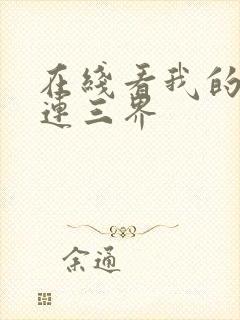 在线看我的
连三界
余通